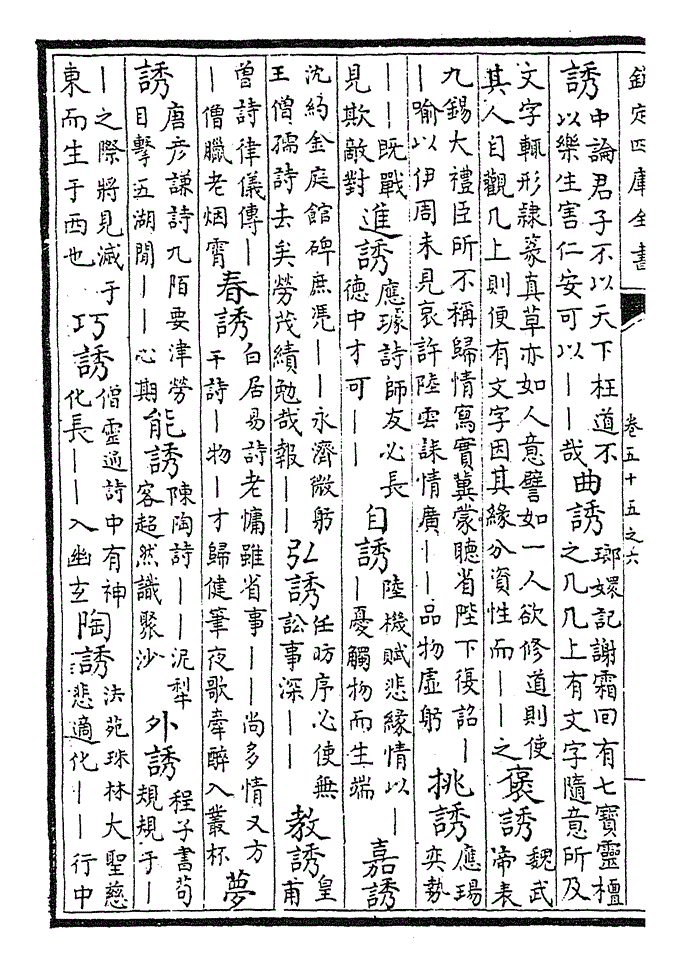 欽定四庫全書 卷五十五之六
誘 中論君子不以天下枉道不以樂生害仁安可以丨丨哉 曲誘 瑯嬛記謝霜回有七寶靈檀之几几上有文字隨意所及
文字輒形隸篆真草亦如人意譬如一人欲修道則使其人自觀几上則便有文字因其緣分資性而丨丨之 褒誘 魏武帝表
九錫大禮臣所不稱歸情寫實冀蒙聽省陛下復詔丨丨喻以伊周未見哀許陸雲誄情廣丨丨品物虛躬 挑誘 應瑒奕勢
丨丨既戰見欺敵對 進誘 應璩詩師友必長德中才可丨丨 自誘 陸機賦悲緣情以丨丨憂觸物而生端 嘉誘
沈約金庭館碑庶凴丨丨永濟微躬王僧孺詩去矣勞茂績勉哉報丨丨 弘誘 任昉序必使無訟事深丨丨 教誘 皇甫
曾詩律儀傳丨丨僧臘老烟霄 春誘 白居易詩老慵雖省事丨丨尚多情又方干詩丨物丨才歸健筆夜歌牽醉入叢杯 夢
誘 唐彦謙詩九陌要津勞目擊五湖閒丨丨心期 能誘 陳陶詩丨丨泥犁客超然識聚沙 外誘 程子書苟規規于丨
丨之際將見滅于東而生于西也 巧誘 僧靈通詩中有神化長丨丨入幽玄 陶誘 法苑珠林大聖慈悲適化丨丨行中